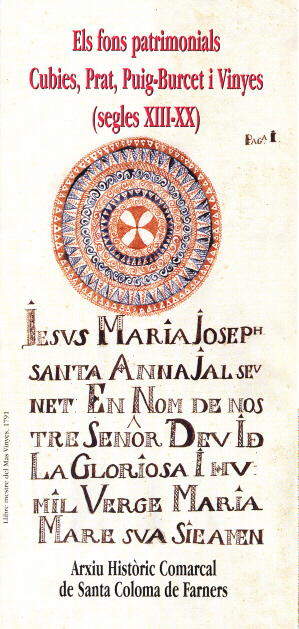 Els fons patrimonials
Cubies, Prat, Puig-Burcet i Vinyes
(segles XIII-XX)
PAGA I.
JESVS MARIA JOSEPH
SANTA ANNA JAL SEU
NET EN NOM DE NOS
TRE SENOR DEV ID
LA GLORIOSA I HU
MIL VERGE MARIA
MARE SVA SIE AMEN
Llibre mestre del Mas Vinyes. 1791
Arxiu Històric Comarcal
de Santa Coloma de Farners